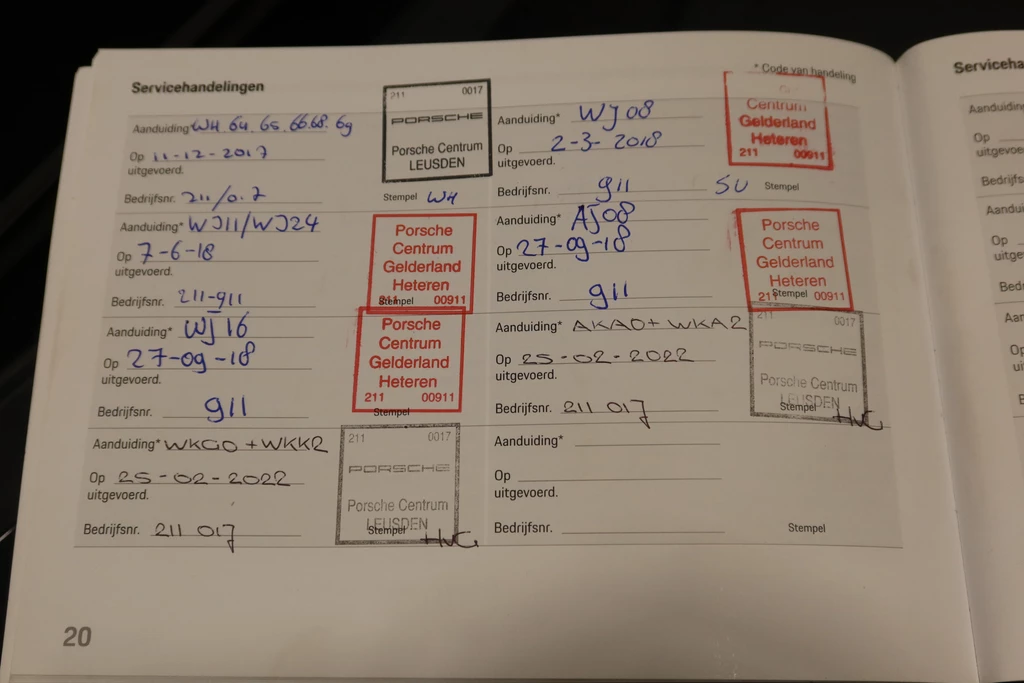 Servicehandelingen
* Code van handeling
Aanduiding WH 64. 65. 66.68. 69
Op 11-12-2017
uitgevoerd.
Bedrijfsnr. 211/0.7
211 0017
PORSCHE
Porsche Centrum
LEUSDEN
Stempel WH
Aanduiding* WJ08
Op 2-3-2018
uitgevoerd.
Bedrijfsnr. 911
SU Stempel
Centrum
Gelderland
Heteren
211 00911
Aanduiding* WJ11/WJ24
Op 7-6-18
uitgevoerd.
Bedrijfsnr. 211-911
Porsche
Centrum
Gelderland
Heteren
211 00911
Stempel
Aanduiding* AJ08
Op 27-09-18
uitgevoerd.
Bedrijfsnr. 911
Porsche
Centrum
Gelderland
Heteren
211 00911
Stempel
Aanduiding* WJ16
Op 27-09-18
uitgevoerd.
Bedrijfsnr. 911
Porsche
Centrum
Gelderland
Heteren
211 00911
Stempel
Aanduiding* AKA0+ WKA2
Op 25-02-2022
uitgevoerd.
Bedrijfsnr. 211 017
211 0017
PORSCHE
Porsche Centrum
LEUSDEN
Stempel HvG
Aanduiding* WKG0 + WKK2
Op 25-02-2022
uitgevoerd.
Bedrijfsnr. 211 017
211 0017
PORSCHE
Porsche Centrum
LEUSDEN
Stempel HvG
Aanduiding*
Op
uitgevoerd.
Bedrijfsnr.
Stempel
20
Op